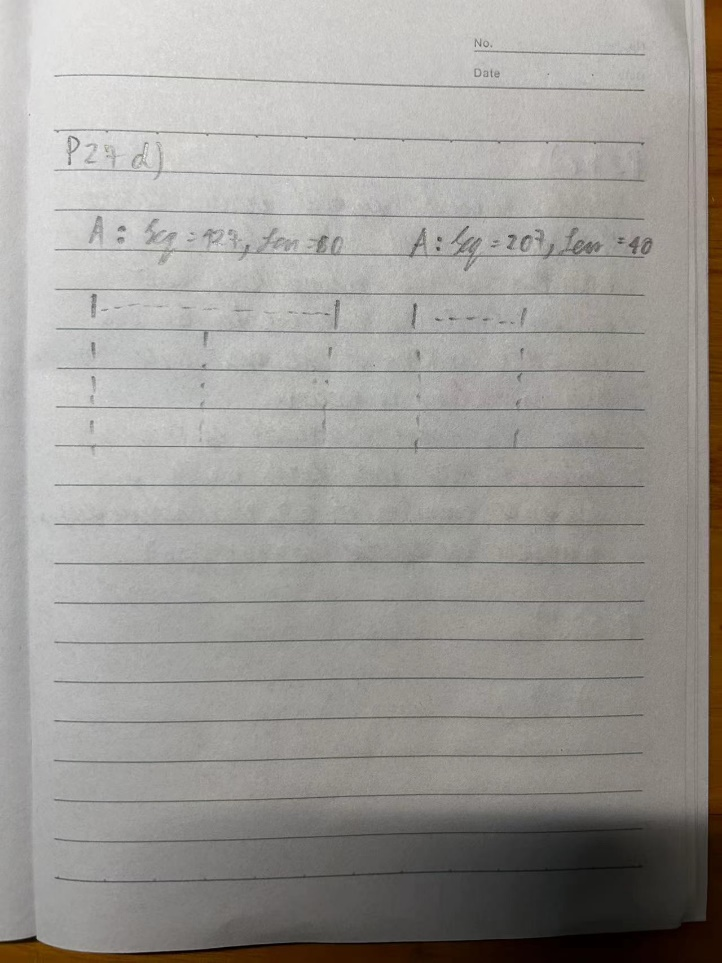 No.
Date
P27 d)
A: Seq = 127, Len = 80 A: Seq = 207, Len = 40